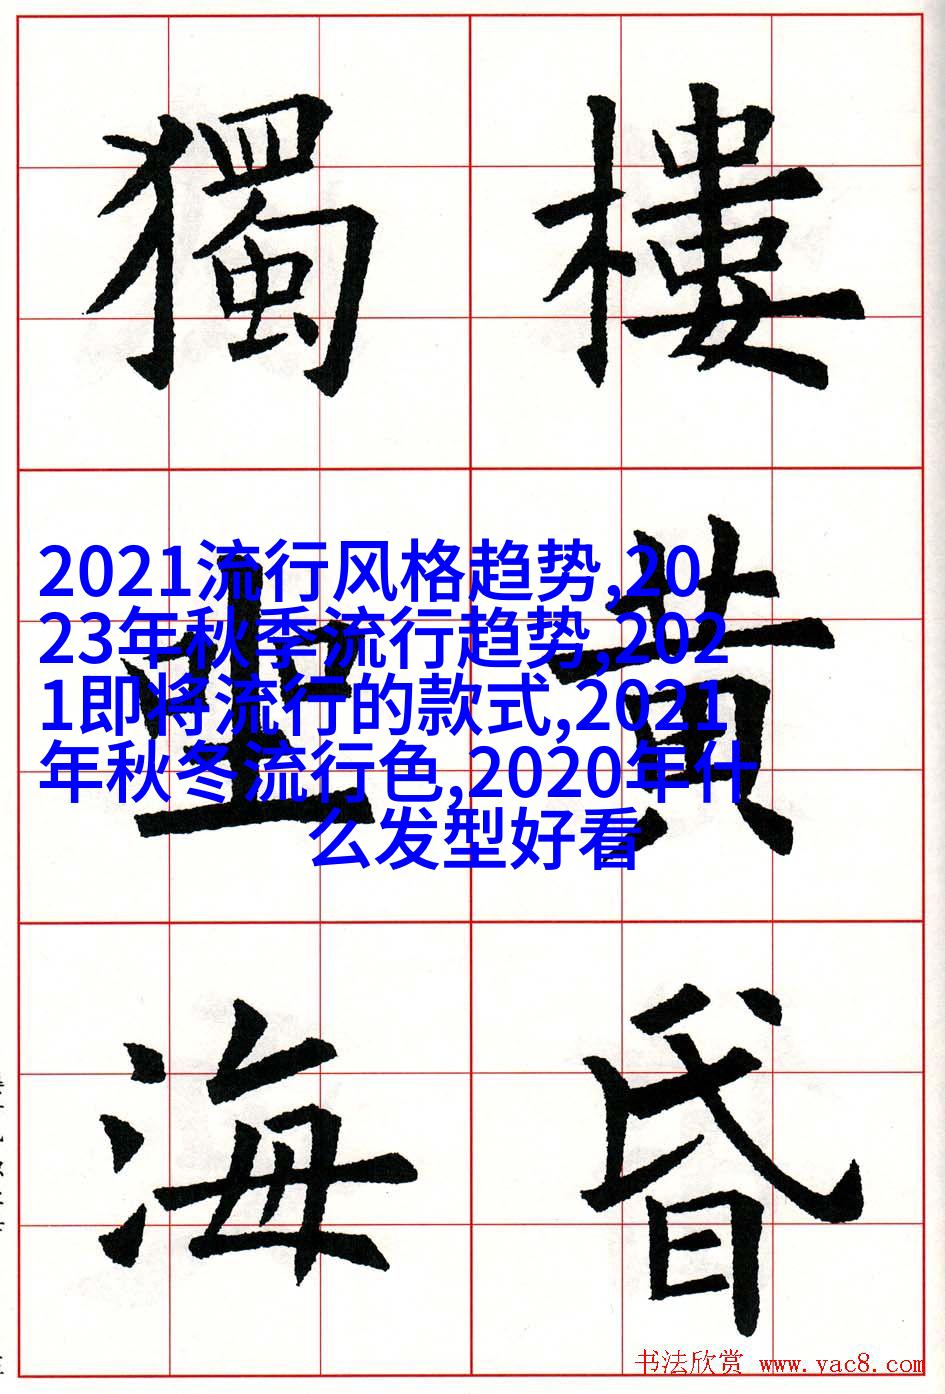 樓黄昏
獨坐海
2021流行风格趋势,20
23年秋季流行趋势,202
1即将流行的款式,2021
年秋冬流行色,2020年什
么发型好看
书法欣赏 www.yac8.com